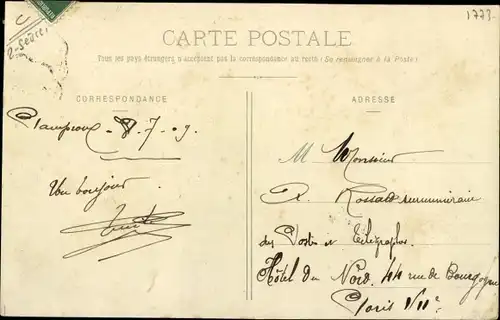 1773.
2-Sèvres
CARTE POSTALE
Tous les pays étrangers n'acceptent pas la correspondance au recto (Se renseigner à la Poste)
CORRESPONDANCE
ADRESSE
8-7-9
Un bonjour
M Monsieur
Rossard surnuméraire
des Postes et Télégraphes
Hôtel du Nord. 44 rue de Bourgogne
Paris VIIe